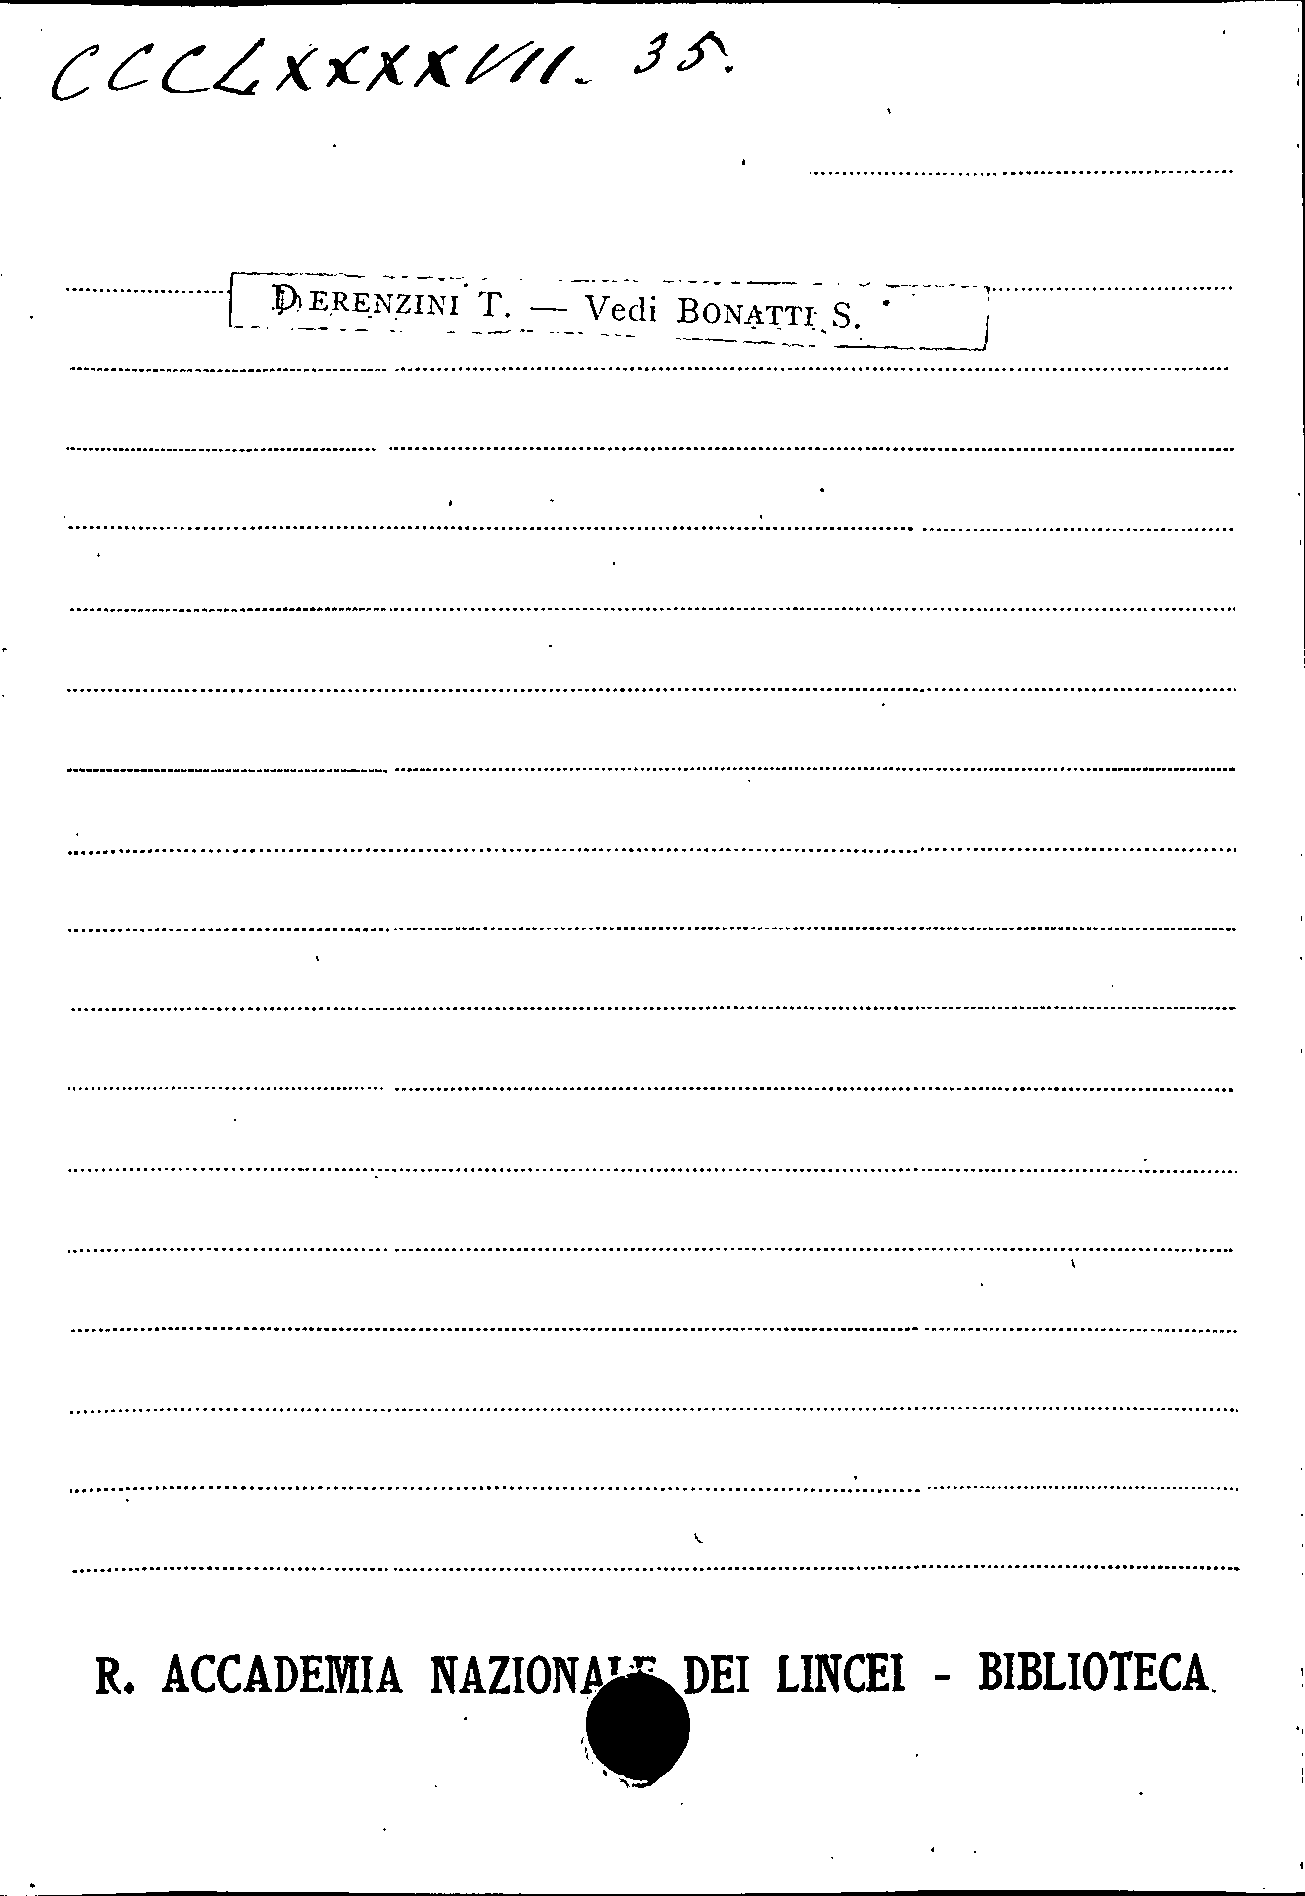 CCCLXXXXVII. 35.
DERENZINI T. — Vedi BONATTI S.
R. ACCADEMIA NAZIONALE DEI LINCEI - BIBLIOTECA